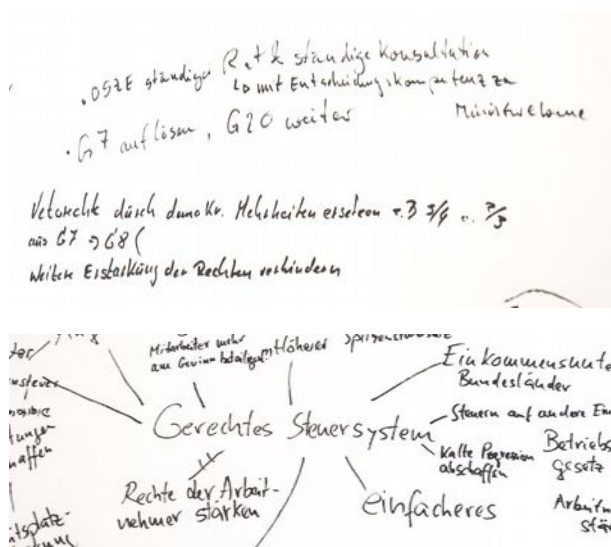 .OSZE ständiger Rat & ständige Konsultation
↳ mit Entscheidungskompetenz zu
Ministerebene
. G7 auflösen, G20 weiter
Vetorechte durch demokr. Mehrheiten ersetzen z.B 3/4 o. 2/3
aus G7 → G8 (
weitere Erstarkung der Rechten verhindern
Mitarbeiter mehr
am Gewinn beteiligen
höherer
Einkommens
Bundesländer
Steuern auf andere
Gerechtes Steuersystem
Kalte Progression
abschaffen
Betriebs
gesetz
Rechte der Arbeit-
nehmer stärken
einfacheres